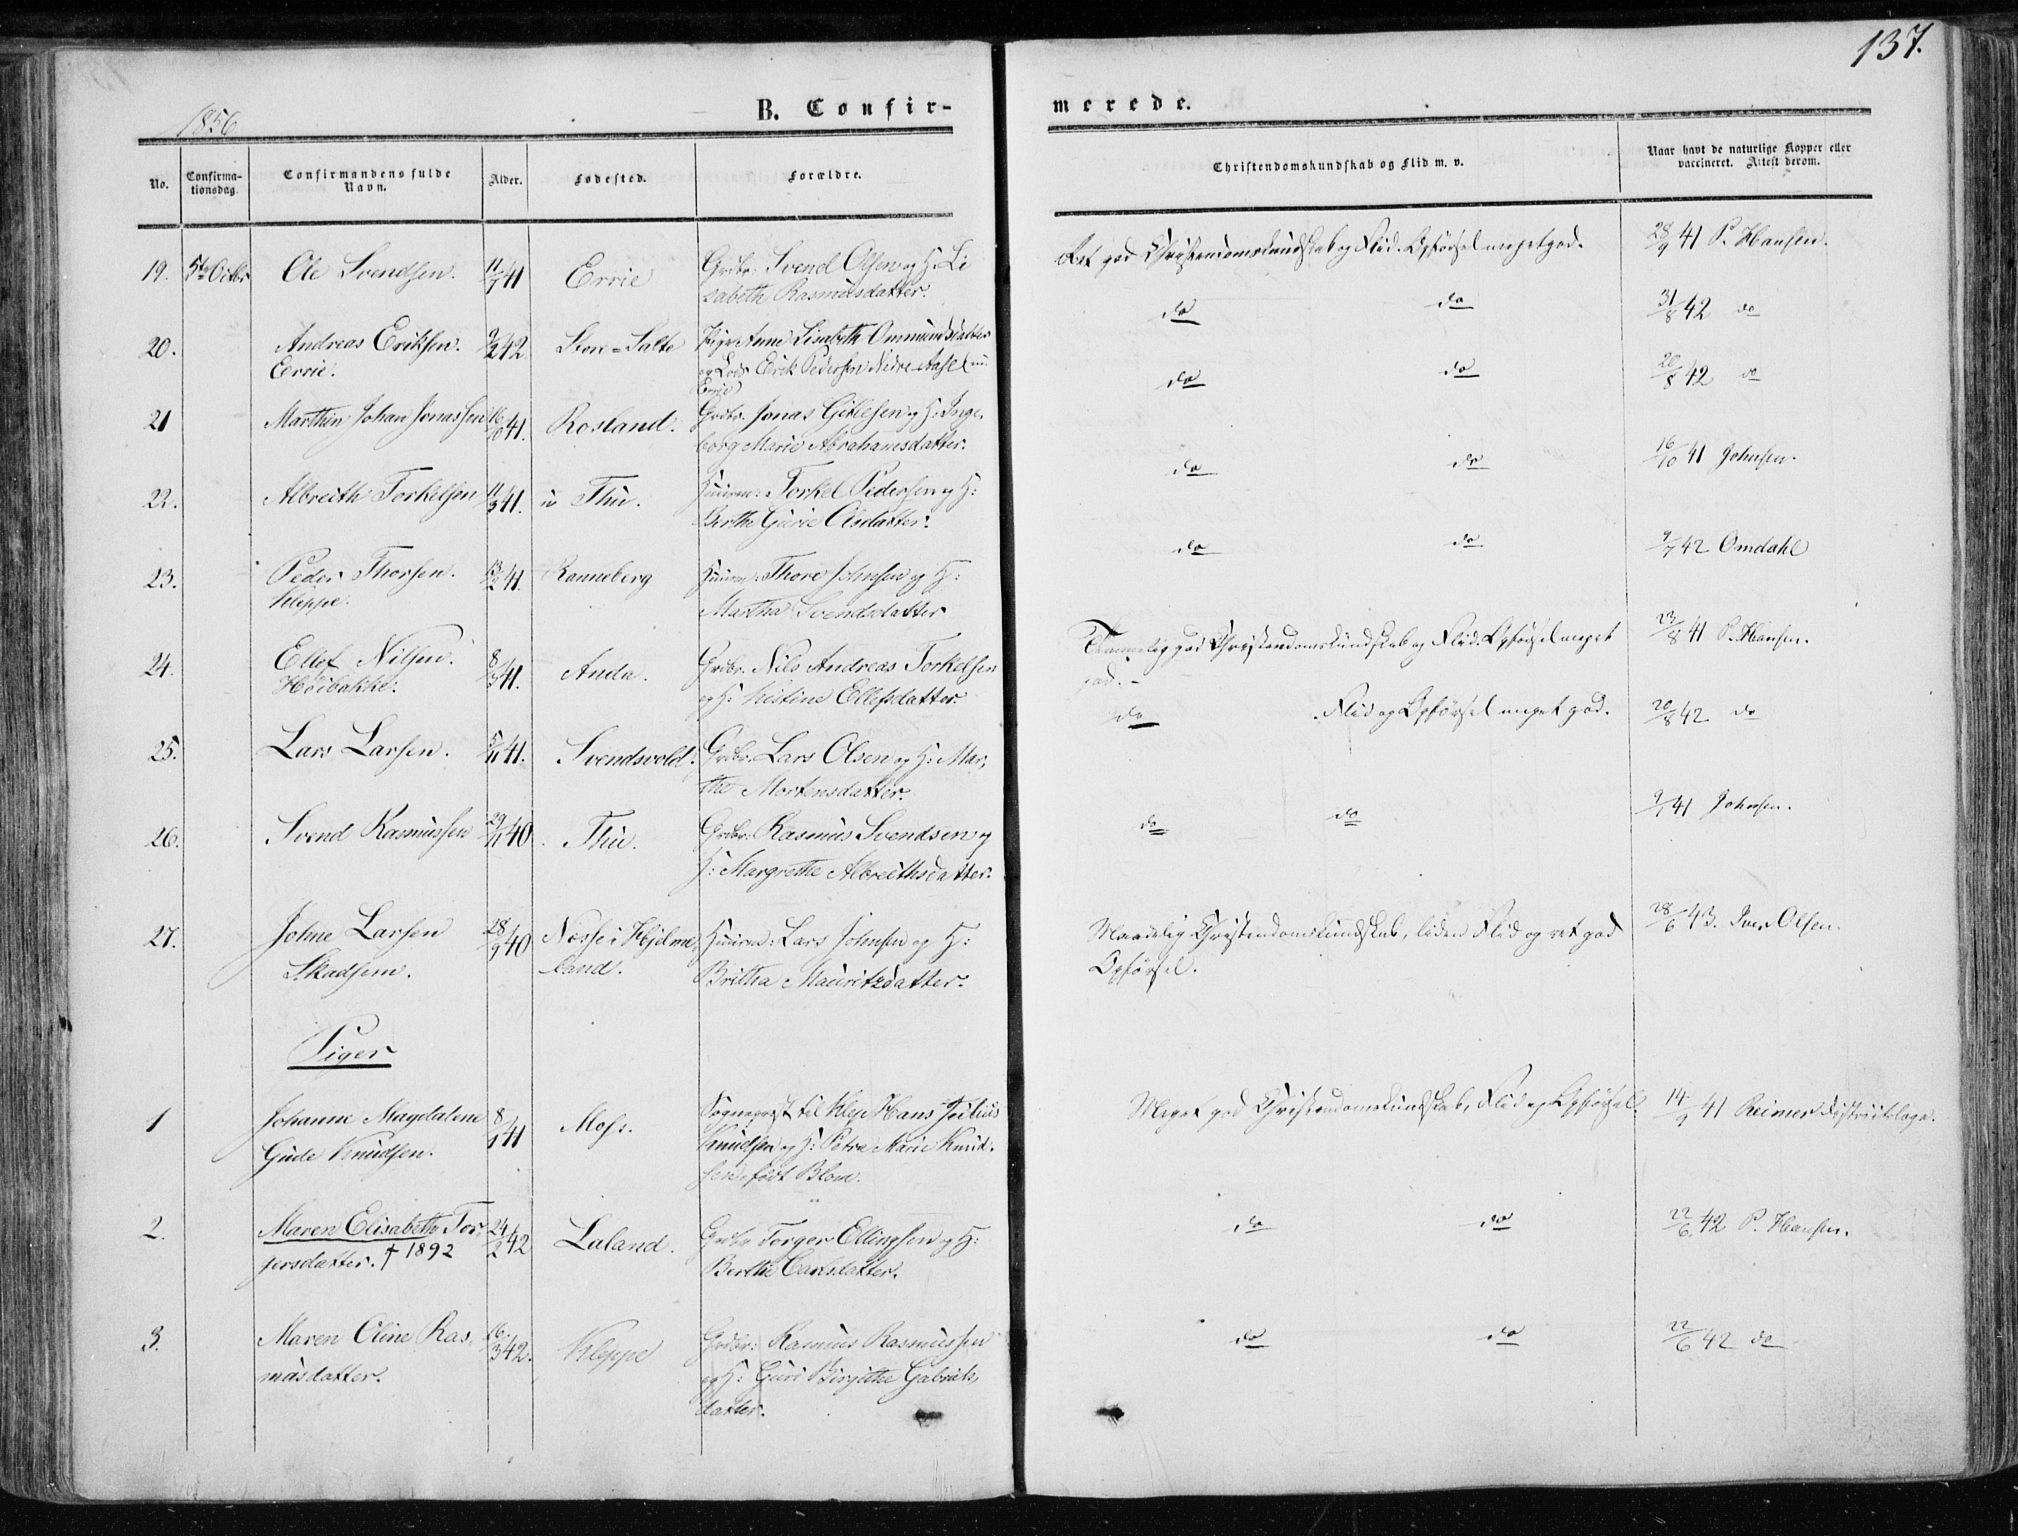 137.
1856
B. Confir-
merede.
No.
Confirma-
tionsdag.
Confirmandens fulde
Navn.
Alder.
Fødested.
Forældre.
Christendomskundskab og Flid m. v.
Naar havt de naturlige Kopper eller
vaccineret. Attest derom.
19. 5te Octbr Ole Svendsen. 11/7 41 Errie Grdbr: Svend Olsen og H: Li
sabeth Rasmusdatter.
Ret god Christendomskundskab og Flid. Opførsel meget god. 28/9 41 P. Hansen.
20. Andreas Eriksen. 9/2 42 Store-Salte Pige Anne Lisabeth Ommundsdatter
Errie. og Erik Pedersen Nedre Aasel
Errie
do do 31/8 42 do
21 Marthin Johan Jonassen 16/10 41. Rosland. Grdbr. Jonas Gitlesen og H: Inge-
borg Marie Abrahamsdatter.
do do 20/8 42 do
22. Albreith Torkelsen 11/3 41. Thu. Huusm: Torkel Pedersen og H:
Berthe Gurie Olsdatter.
do do 16/10 41 Johnsen.
23. Peder Thorsen. 13/2 41. Ranneberg Huusm: Thore Johnsen og H:
Kleppe. Martha Svendsdatter
do do 9/7 42 Omdahl
24. Ellef Nilsen. 8/3 41. Anda. Grdbr. Nils Andreas Torkelsen
Høibakke. og H: Kistine Ellefsdatter.
Temmelig god Christendomskundskab og Flid. Opførsel meget
god. 23/8 41 P. Hansen.
25. Lars Larsen. 5/11 41. Svendsvold. Grdbr. Lars Olsen og H: Mar-
the Mortensdatter.
do Flid og Opførsel meget god. 20/8 42 do
26. Svend Rasmussen 29/11 40. Thu. Grdbr. Rasmus Svendsen og
H: Margrethe Albreithsdatter.
do do 9/1 41 Johnsen.
27. Johne Larsen 28/9 40 Næsse i Hjelme- Huusm: Lars Johnsen og H:
Skadsem. land. Britha Mauritzdatter.
Maadelig Christendomskundskab, liden Flid og ret god
Opførsel. 28/6 43. Iver Olsen.
Piger
1 Johanne Magdalene 8/1 41 Moss. Sognepræst til Klep Hans Julius
Gude Knudsen. Knudsen og H: Petra Marie Knud-
sen, født Blom.
Meget god Christendomskundskab, Flid og Opførsel. 14/9 41 Reimer Districtslæge.
2. Maren Elisabeth Tor- 24/2 42 Laland. Grdbr Torger Ellingsen og H:
jersdatter. † 1892 Berthe Larsdatter.
do do 22/6 42 P. Hansen.
3. Maren Oline Ras- 16/3 42. Kleppe Grdbr: Rasmus Rasmussen
musdatter. og H: Guri Birgithe Gabriels-
datter.
do do 22/6 42 do